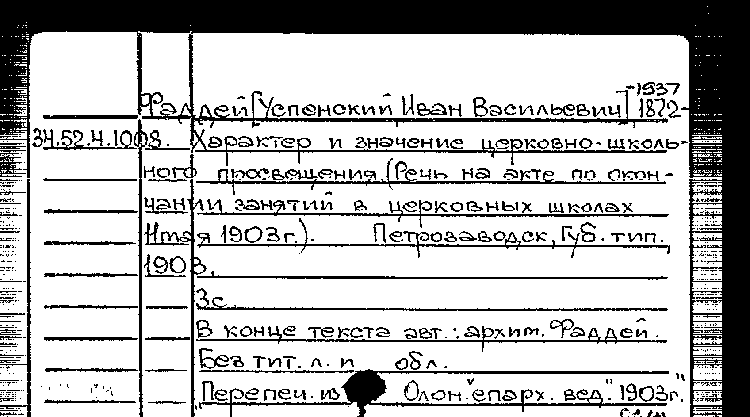 -1937
Фаддей [Успенский Иван Васильевич] 1872-
34.52.4.1008. Характер и значение церковно-школь-
ного просвещения. (Речь на акте по окон-
чании занятий в церковных школах
мая 1903г.). Петрозаводск, Губ. тип.,
1903.
3с.
В конце текста авт.: архим. Фаддей.
Без тит. л. и обл.
"Перепеч. из Олон. епарх. вед." 1903г."